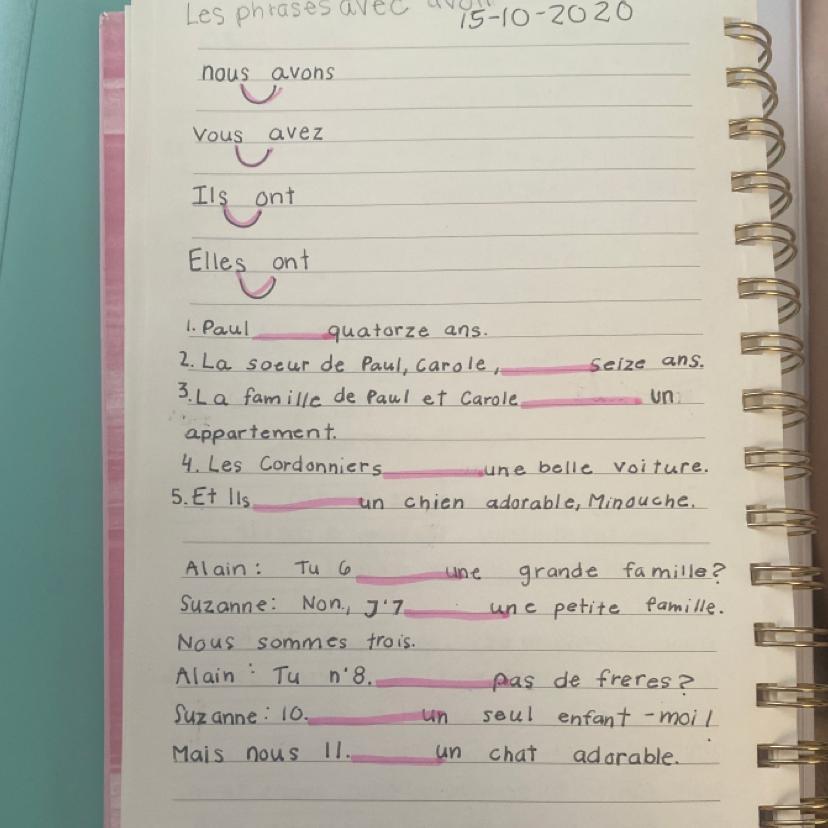 Les phrases avec avoir
15-10-2020
nous avons
vous avez
Ils ont
Elles ont
1. Paul ______ quatorze ans.
2. La soeur de Paul, Carole, ______ seize ans.
3. La famille de Paul et Carole ______ un
appartement.
4. Les Cordonniers ______ une belle voiture.
5. Et Ils ______ un chien adorable, Minouche.
Alain: Tu 6 ______ une grande famille?
Suzanne: Non, J'7 ______ une petite famille.
Nous sommes trois.
Alain: Tu n'8. ______ pas de freres?
Suzanne: 10. ______ un seul enfant - moi!
Mais nous 11. ______ un chat adorable.